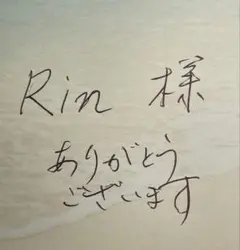 Rin 様
ありがとう
ございます